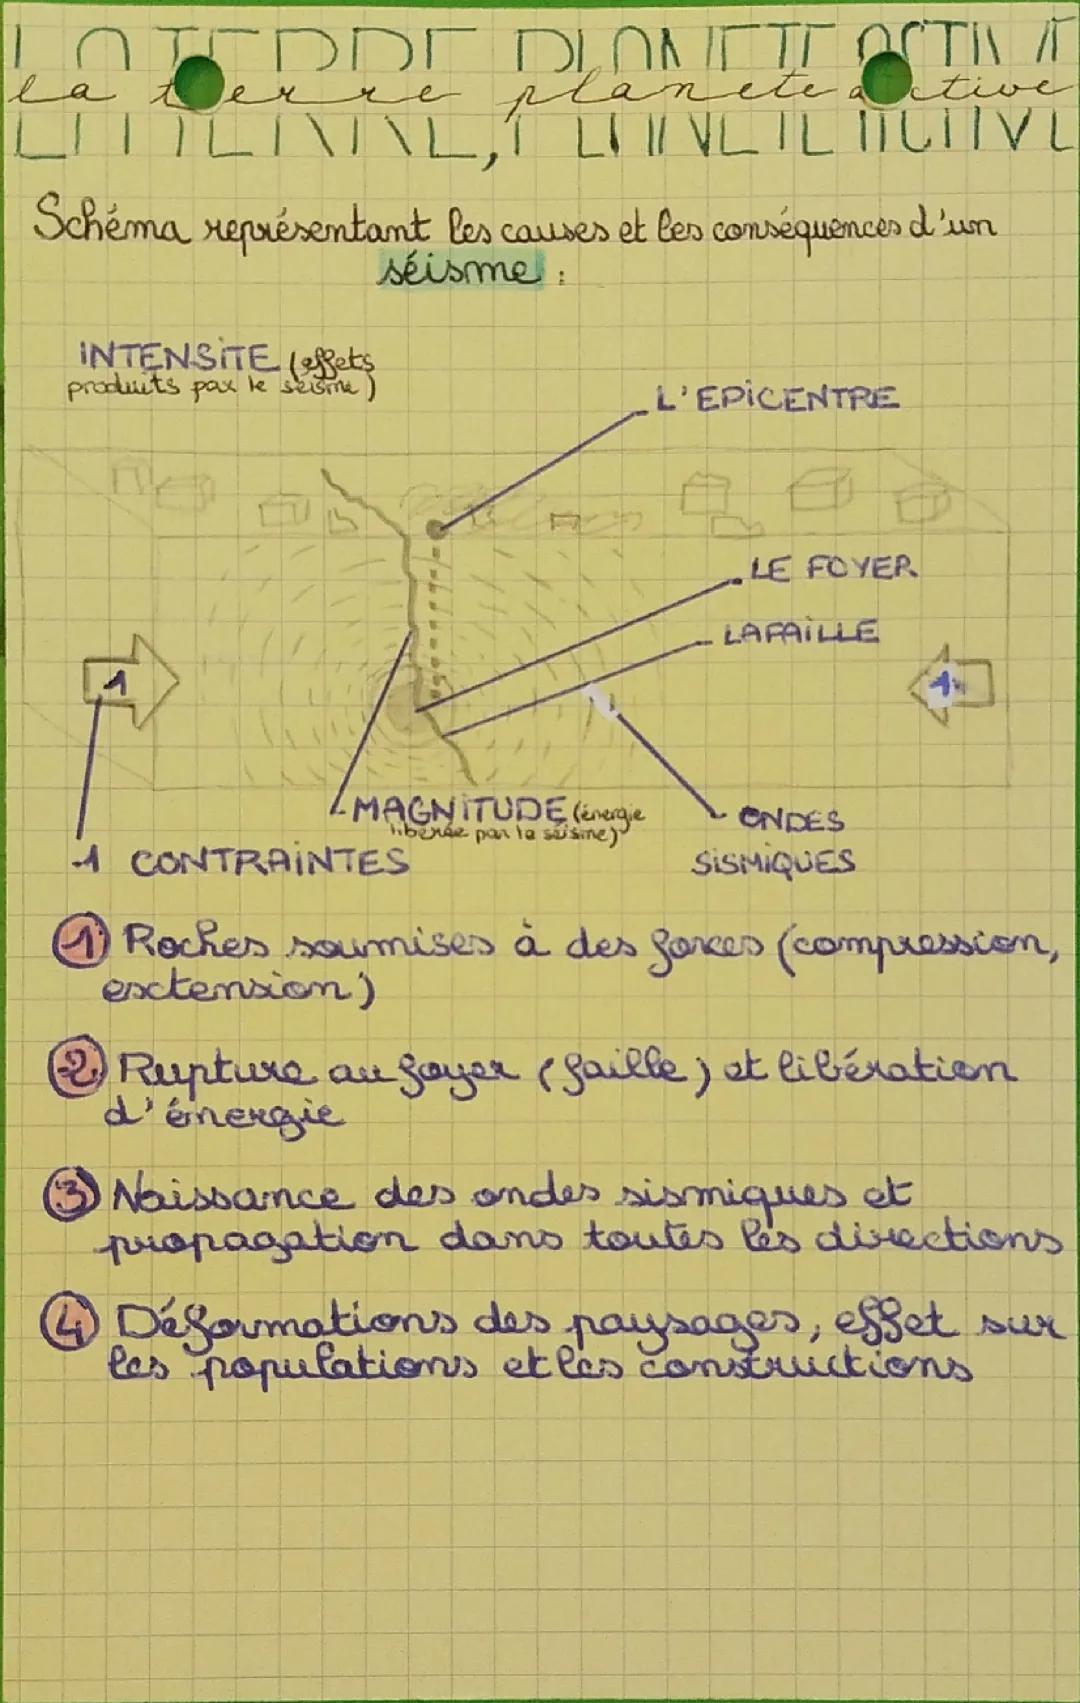 LA TERRE, PLANETE ACTIVE
la terre planete active
Schéma représentant les causes et les conséquences d'un
séisme :
INTENSITE (effets
produits par le séisme)
L'EPICENTRE
LE FOYER
LA FAILLE
1
1
MAGNITUDE (énergie
libérée par le séisme)
ONDES
SISMIQUES
1 CONTRAINTES
1 Roches soumises à des forces (compression,
extension)
2 Rupture au foyer (faille) et libération
d'énergie
3 Naissance des ondes sismiques et
propagation dans toutes les directions
4 Déformations des paysages, effet sur
les populations et les constructions